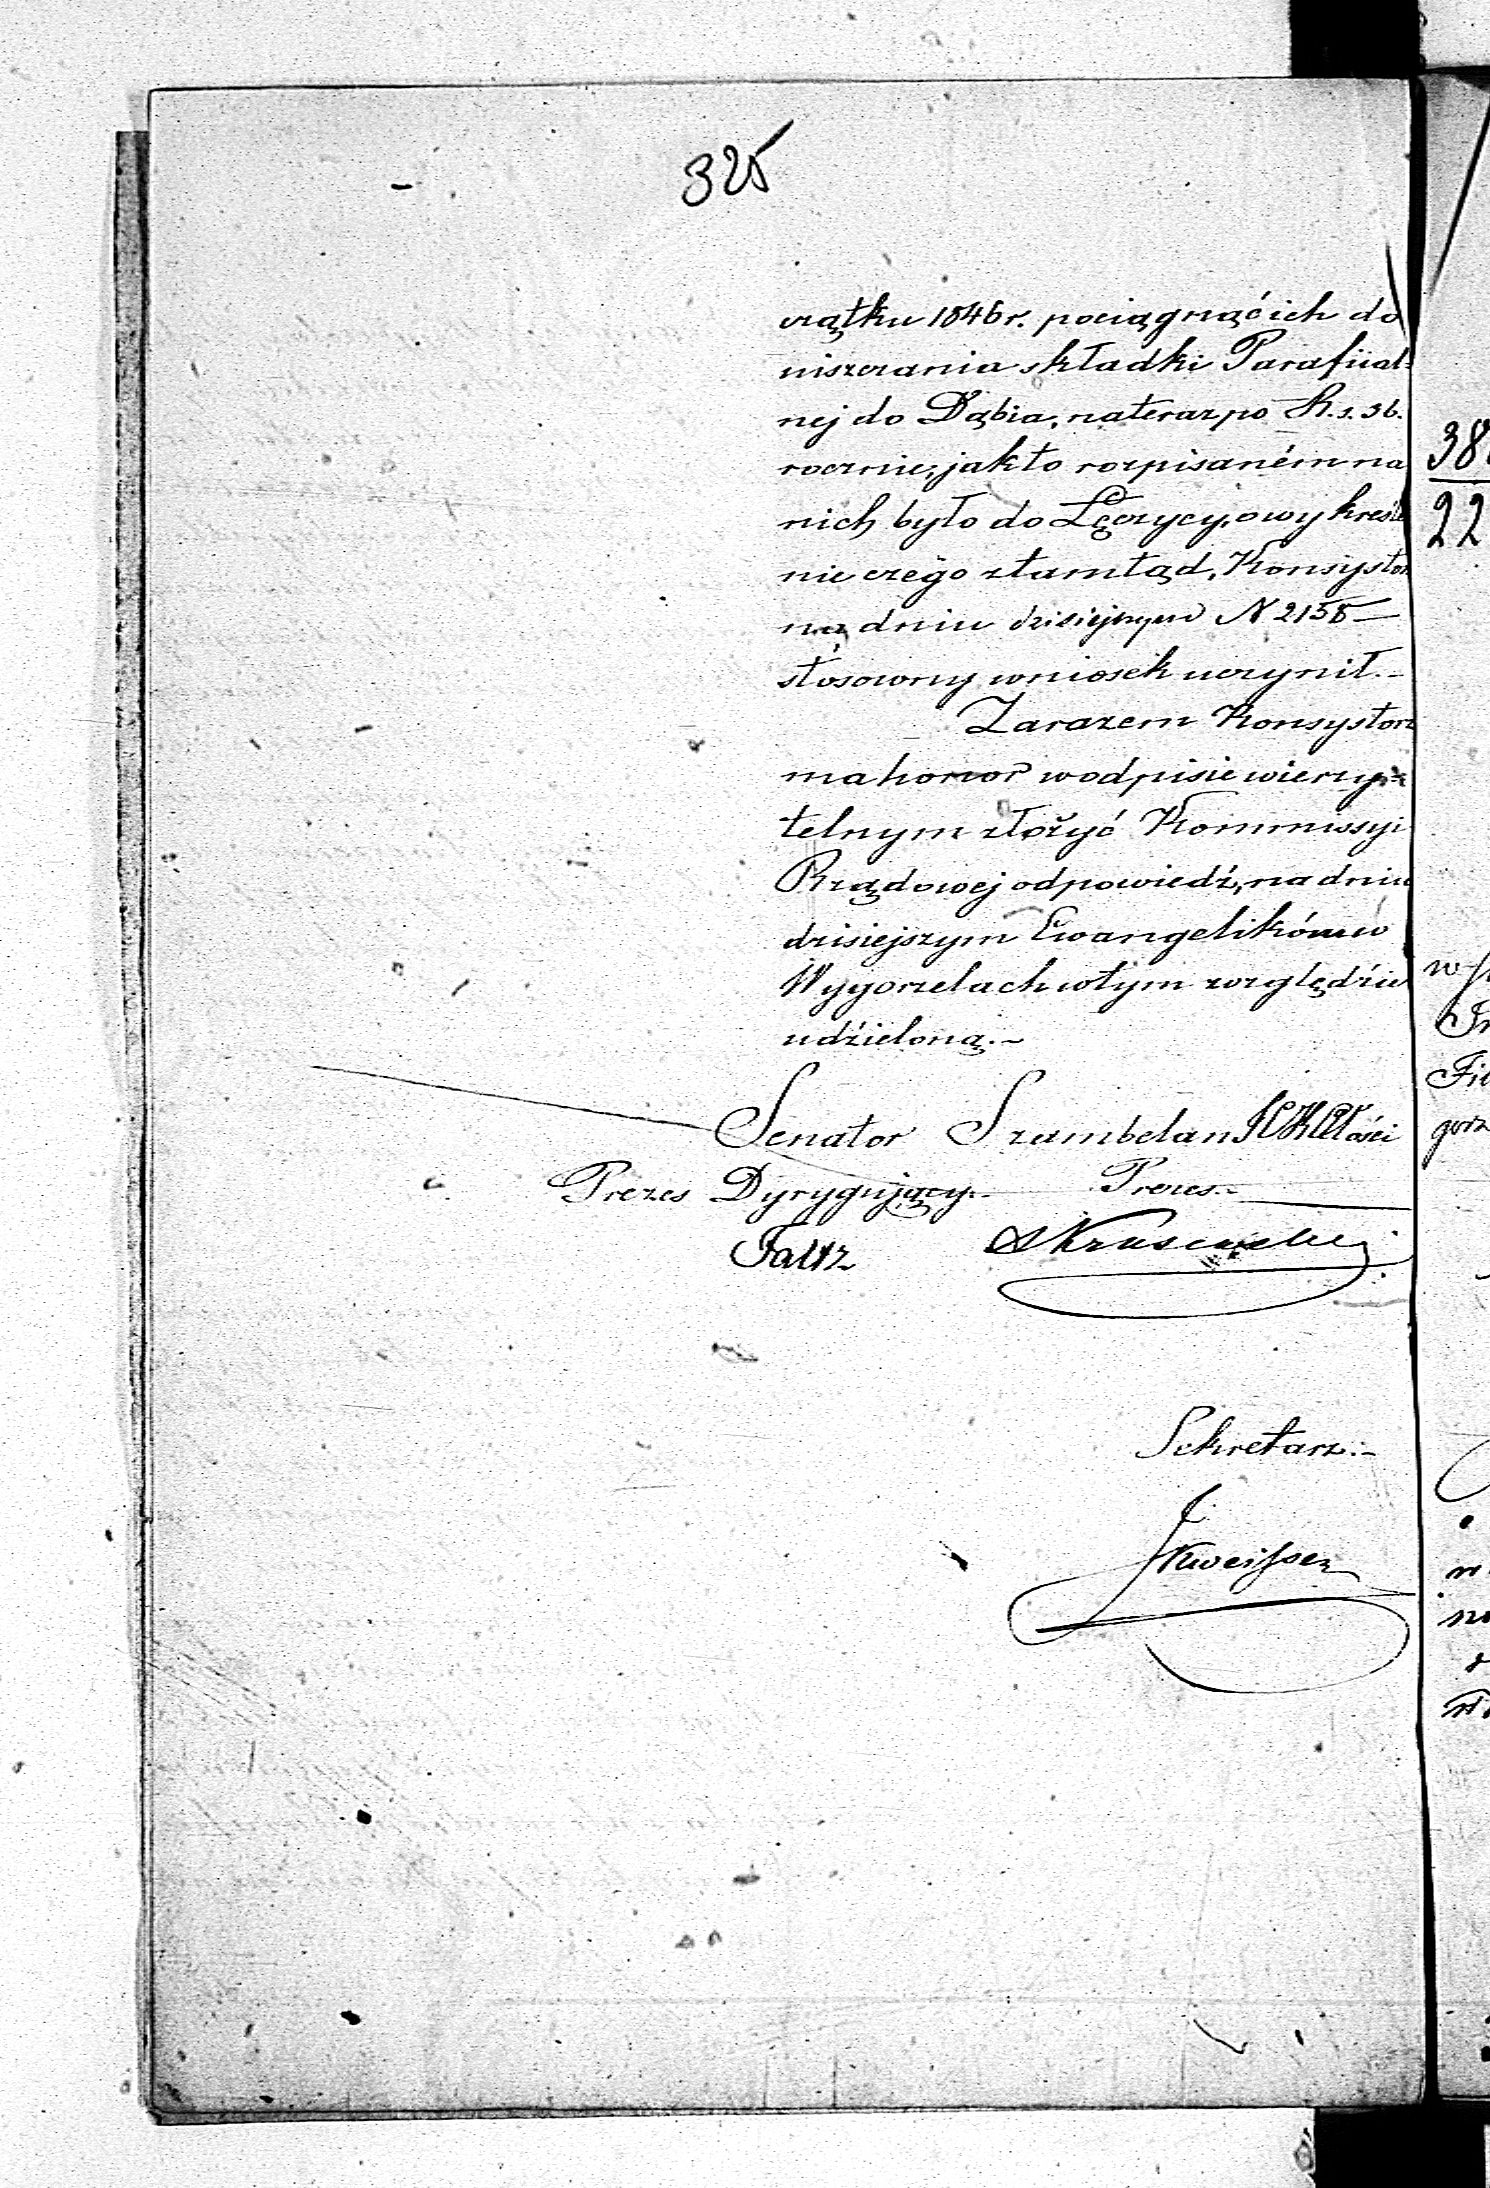 325
czątku 1846 r. pociągnąć ich do
uiszczania składki Parafiial=
nej do Dąbia, na teraz po R. s. 36.
rocznie, jak to rozpisaném na
nich było do Łęczycy, o wykreśle
nie czego ztamtąd, Konsystorz
na dniu dzisiejszym N 2158 —
stosowny wniosek uczynił. —
Zarazem Konsystorz
ma honor w odpisie wierzy=
telnym złożyć Kommissyi
Rządowej odpowiedź, na dniu
dzisiejszym Ewangelikóm w
Wygorzelach w tym względzie
udzieloną. —
Senator Szambelan JCK Mości
Prezes Dyrygujący. Prezes. —
Faltz
Sekretarz. —
38
22